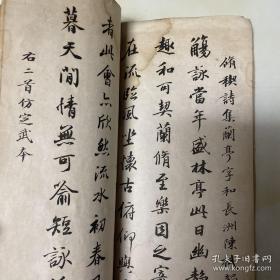 脩禊詩集蘭亭字和長洲陳
觴詠當年盛林亭此日幽
趣和可契蘭脩至樂因之寄
在流臨風坐懷古俯仰
青山會亦欣然流水初春
暮天閒情無可喻短詠
右二首仿定武本